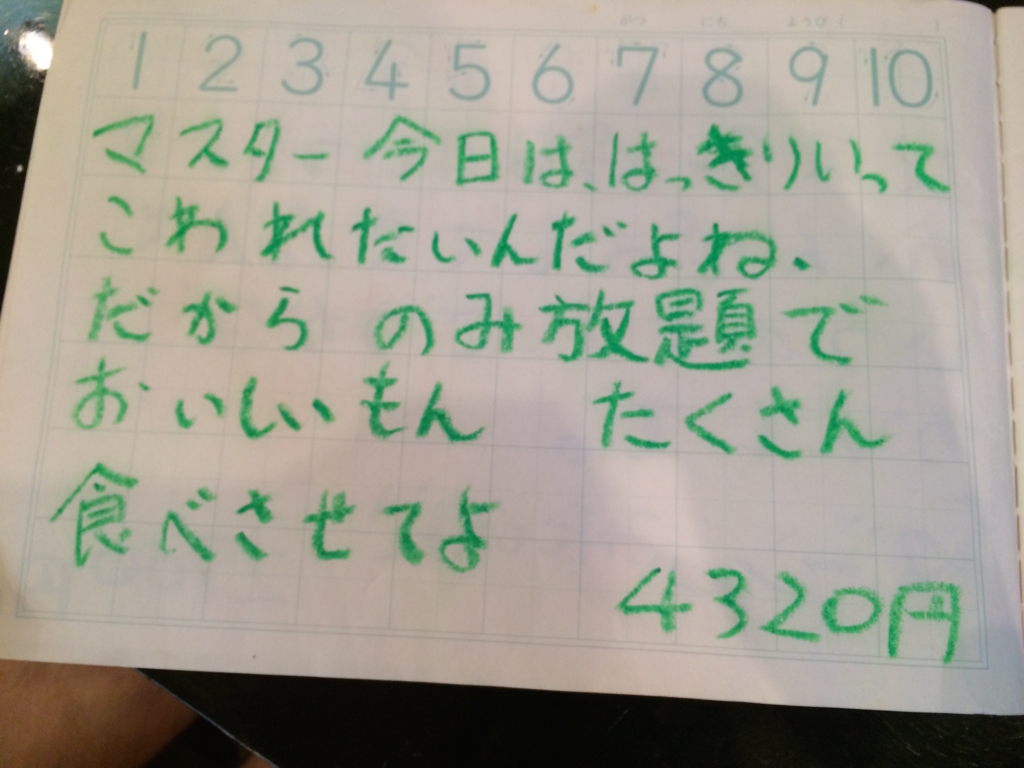 がつ にち ようび( )
1 2 3 4 5 6 7 8 9 10
マスター 今日は、はっきりいって
こわれたいんだよね、
だから のみ放題で
おいしいもん たくさん
食べさせてよ
4320円